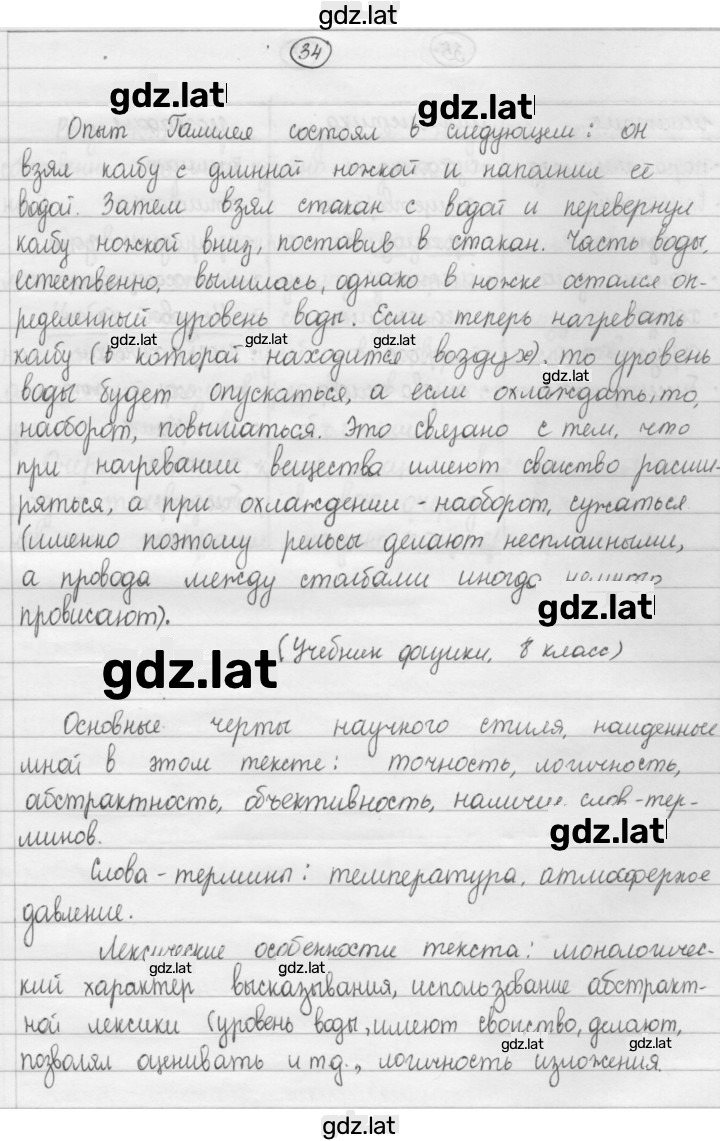 gdz.lat
34
gdz.lat
Опыт Галилея состоял в следующем: он
взял колбу с длинной ножкой и наполнил её
водой. Затем взял стакан с водой и перевернул
колбу ножкой вниз, поставив в стакан. Часть воды,
естественно, вылилась, однако в ножке остался оп-
ределенный уровень воды. Если теперь нагревать
gdz.lat gdz.lat gdz.lat
колбу (в которой находится воздух), то уровень
gdz.lat
воды будет опускаться, а если охлаждать, то,
наоборот, повышаться. Это связано с тем, что
при нагревании вещества имеют свойство расши-
ряться, а при охлаждении - наоборот, сужаться
(именно поэтому рельсы делают несплошными,
а провода между столбами иногда
gdz.lat
провисают).
gdz.lat
(Учебник физики, 8 класс)
Основные черты научного стиля, найденные
мной в этом тексте: точность, логичность,
абстрактность, объективность, наличие слов-тер-
gdz.lat
минов.
Слова-термины: температура, атмосферное
давление.
Лексические особенности текста: монологичес-
gdz.lat gdz.lat
кий характер высказывания, использование абстракт-
ной лексики (уровень воды, имеют свойство, делают,
gdz.lat gdz.lat
позволял оценивать и т.д., логичность изложения.
gdz.lat